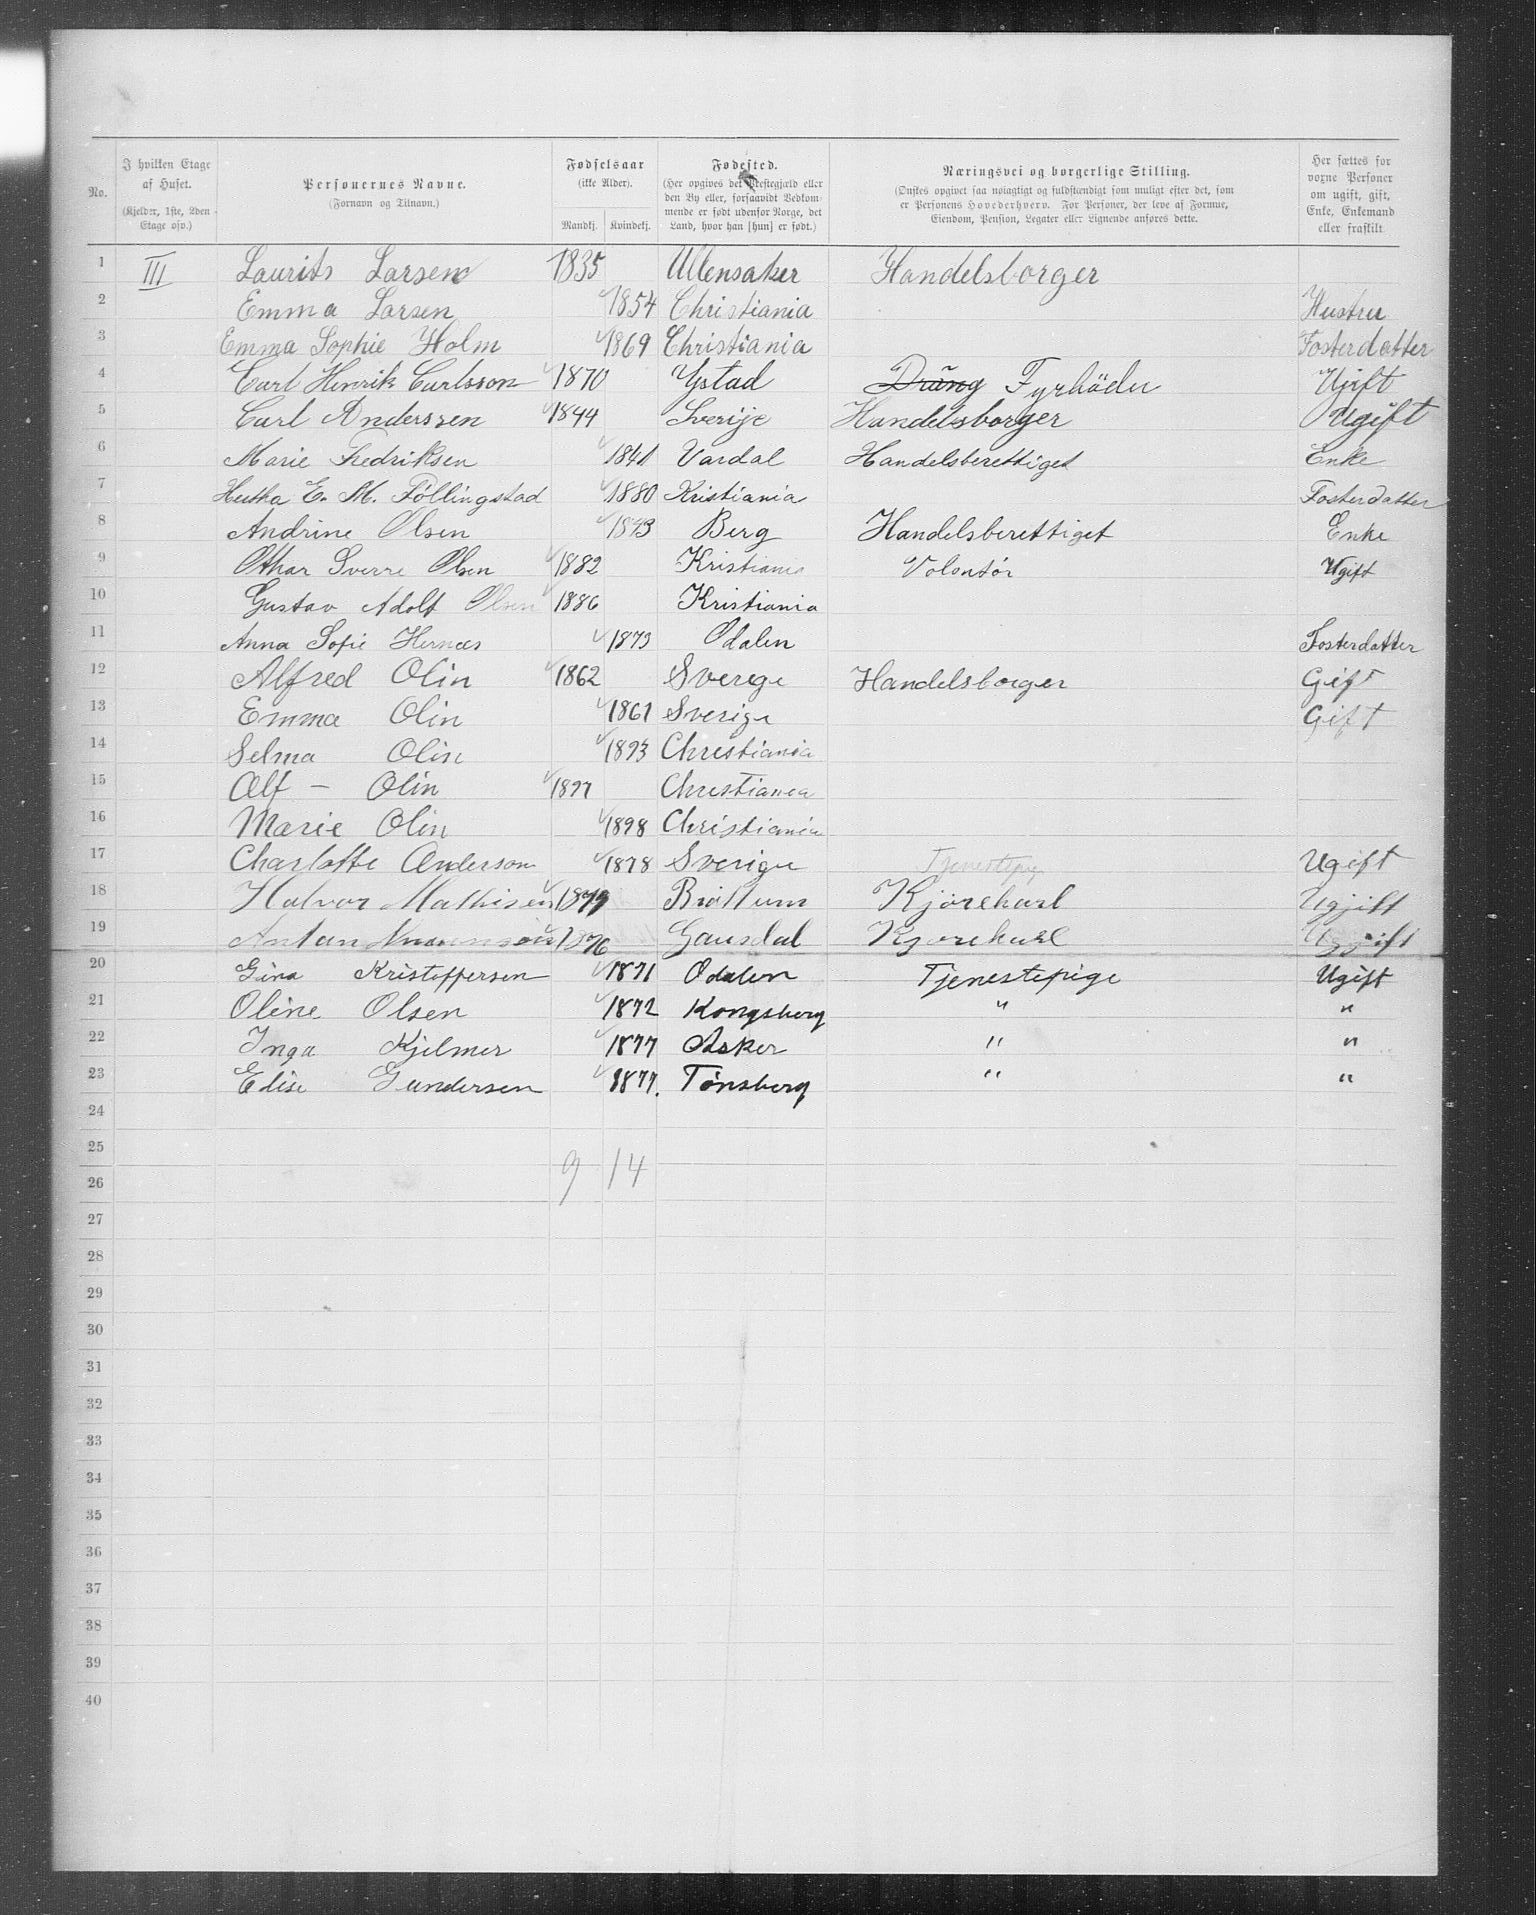 No.
I hvilken Etage af Huset. (Kjelder, 1ste, 2den Etage osv.)
Personernes Navne. (Fornavn og Tilnavn.)
Fødselsaar (ikke Alder). Mandkj. Kvindekj.
Fødested. (Her opgives det Præstegjæld eller den By eller, forsaavidt Vedkommende er født udenfor Norge, det Land, hvor han [hun] er født.)
Næringsvei og borgerlige Stilling. (Ønskes opgivet saa nøiagtigt og fuldstændigt som muligt efter det, som er Personens Hovederhverv. For Personer, der leve af Formue, Eiendom, Pension, Legater eller Lignende anføres dette.
Her sættes for voxne Personer om ugift, gift, Enke, Enkemand eller fraskilt
1 III Laurits Larsen 1835 Ullensaker Handelsborger
2 Emma Larsen 1854 Christiania Hustru
3 Emma Sophie Holm 1869 Christiania Fosterdatter
4 Carl Henrik Carlsson 1870 Ystad Dräng Fyrböder Ugift
5 Carl Anderssen 1844 Sverije Handelsborger Ugift
6 Marie Fredriksen 1841 Vardal Handelsberettiget Enke
7 E. M. Föllingstad 1880 Kristiania Fosterdatter
8 Andrine Olsen Berg Handelsberettiget Enke
9 Othar Sverre Olsen 1882 Kristiania Volontør Ugift
10 Gustav Adolf Olsen 1886 Kristiania
11 Anna Sofie Hernæs 1873 Odalen Fosterdatter
12 Alfred Olin 1862 Sverege Handelsborger Gift
13 Emma Olin 1861 Sverige Gift
14 Selma Olin 1893 Christiania
15 Alf - Olin 1897 Christiania
16 Marie Olin 1898 Christiania
17 Charlotte Anderson 1878 Sverige Tjenestepig Ugift
18 Halvor Mathisen 1879 Brøttum Kjörekarl Ugjift
19 Antan 1876 Gausdal Kjørekarl Uggift
20 Gina Kristoffersen 1871 Odalen Tjenestepige Ugift
21 Oline Olsen 1872 Kongsberg " "
22 Inga Kjelmer 1877 Asker " "
23 Elise Gundersen 1877. Tönsberg " "
24
25
9 14
26
27
28
29
30
31
32
33
34
35
36
37
38
39
40